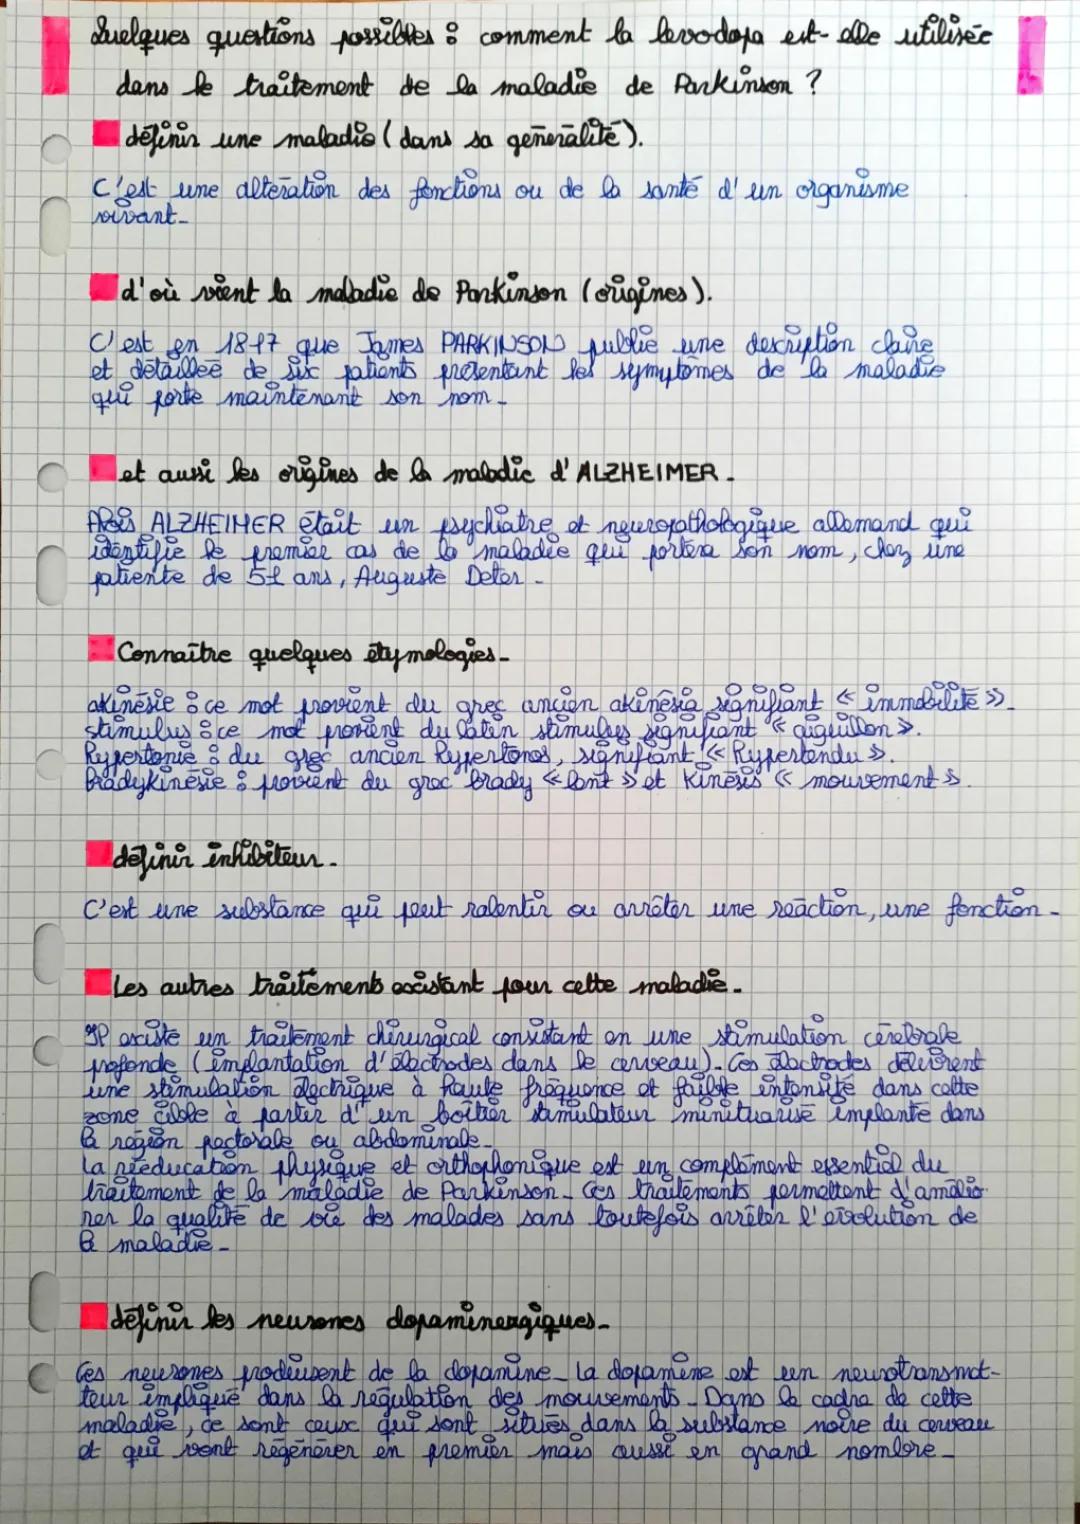 Quelques questions possibles : comment la levodopa est-elle utilisée
dans le traitement de la maladie de Parkinson ?
définir une maladie (dans sa généralité).
C'est une altération des fonctions ou de la santé d'un organisme
vivant.
d'où vient la maladie de Parkinson (origines).
C'est en 1817 que James PARKINSON publie une description claire
et détaillée de six patients présentant les symptômes de la maladie
qui porte maintenant son nom.
et aussi les origines de la maladie d'ALZHEIMER.
Aloïs ALZHEIMER était un psychiatre et neuropathologique allemand qui
identifie le premier cas de la maladie qui portera son nom, chez une
patiente de 51 ans, Auguste Deter.
Connaître quelques étymologies.
akinésie : ce mot provient du grec ancien akinêsia signifiant « immobilité ».
stimulus : ce mot provient du latin stimulus signifiant « aiguillon ».
hypertonie : du grec ancien hypertonos, signifiant « hypertendu ».
bradykinésie : provient du grec brady « lent » et kinesis « mouvement ».
définir inhibiteur.
C'est une substance qui peut ralentir ou arrêter une réaction, une fonction.
Les autres traitements existant pour cette maladie.
Il existe un traitement chirurgical consistant en une stimulation cérébrale
profonde (implantation d'électrodes dans le cerveau). Ces électrodes délivrent
une stimulation électrique à haute fréquence et faible intensité dans cette
zone cible à partir d'un boîtier stimulateur minituarisé implanté dans
la région pectorale ou abdominale.
La rééducation physique et orthophonique est un complément essentiel du
traitement de la maladie de Parkinson. Ces traitements permettent d'amélio-
rer la qualité de vie des malades sans toutefois arrêter l'évolution de
la maladie.
définir les neurones dopaminergiques.
Ces neurones produisent de la dopamine. La dopamine est un neurotransmet-
teur impliqué dans la régulation des mouvements. Dans le cadre de cette
maladie, ce sont ceux qui sont situés dans la substance noire du cerveau
et qui vont régénérer en premier mais aussi en grand nombre.